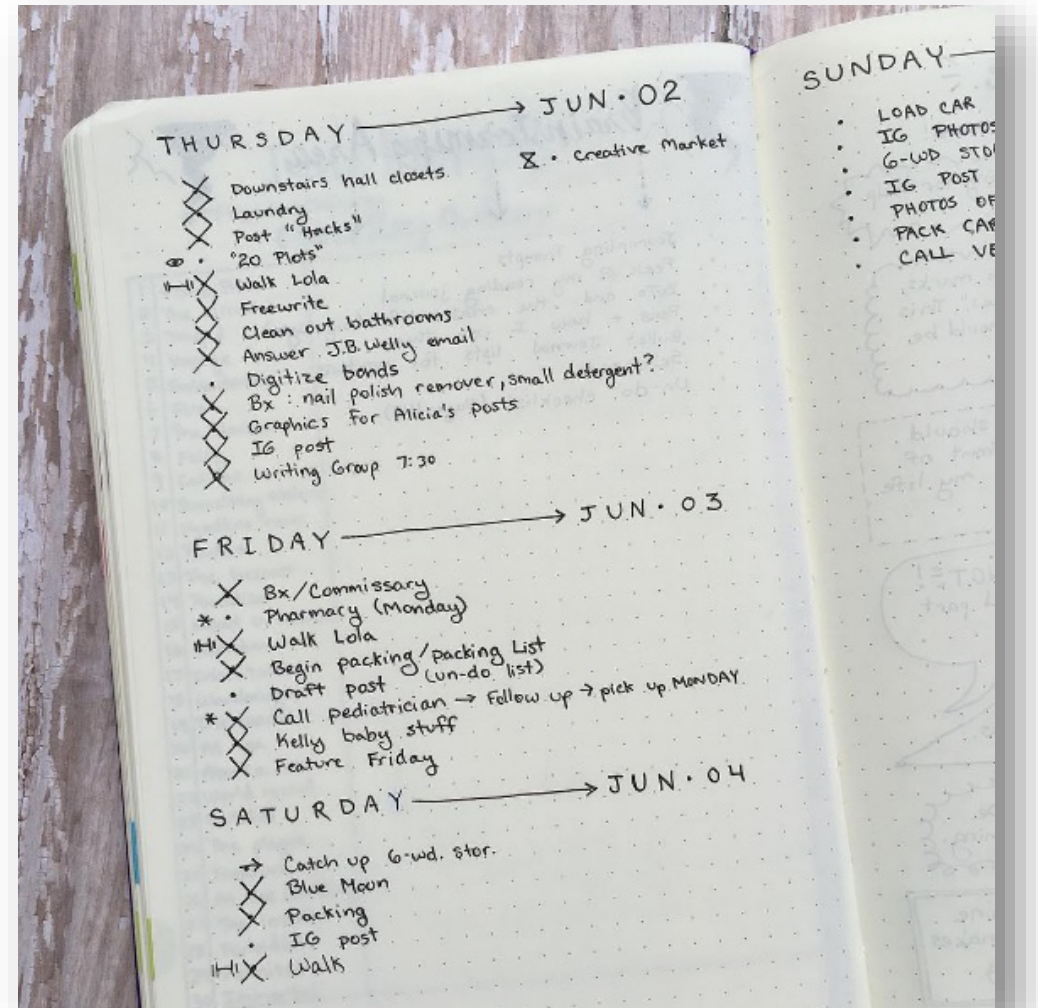 THURSDAY → JUN · 02
⧖ · Creative Market
X Downstairs hall closets
X Laundry
X Post "Hacks"
· "20 Plots"
X Walk Lola
X Freewrite
X Clean out bathrooms
X Answer J.B. Welly email
· Digitize bonds
X Bx : nail polish remover, small detergent?
X Graphics for Alicia's posts
X IG post
X Writing Group 7:30
FRIDAY → JUN · 03
X Bx/Commissary
* · Pharmacy (Monday)
X Walk Lola
X Begin packing/packing List
· Draft post (un-do list)
* X Call pediatrician → Follow up → pick up MONDAY
X Kelly baby stuff
X Feature Friday
SATURDAY → JUN · 04
→ Catch up 6-wd. stor.
X Blue Moon
X Packing
· IG post
X Walk
SUNDAY
· LOAD CAR
· IG PHOTOS
· 6-WD STO
· IG POST
· PHOTOS OF
· PACK CAR
· CALL VE